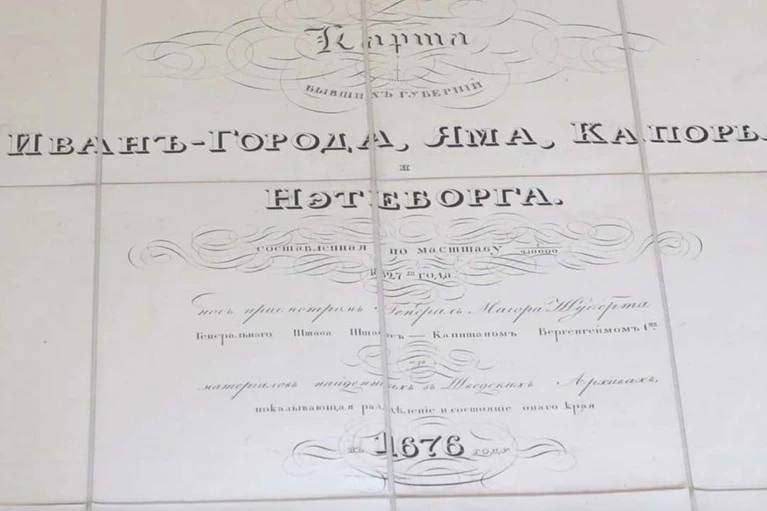 Карта
БЫВШИХЪ ГУБЕРНІЙ
ИВАНЪ-ГОРОДА, ЯМА, КАПОРЬ
И
НЭТЕБОРГА.
составленная по масштабу 1/210000
1827го года
подъ присмотромъ Генералъ Маіора Шуберта
Генеральнаго Штаба Штабсъ-Капитаномъ Бергенгеймомъ 1мъ
изъ
матеріаловъ найденныхъ въ Шведскихъ Архивахъ,
показывающая раздѣленіе и состояніе онаго края
въ 1676 году